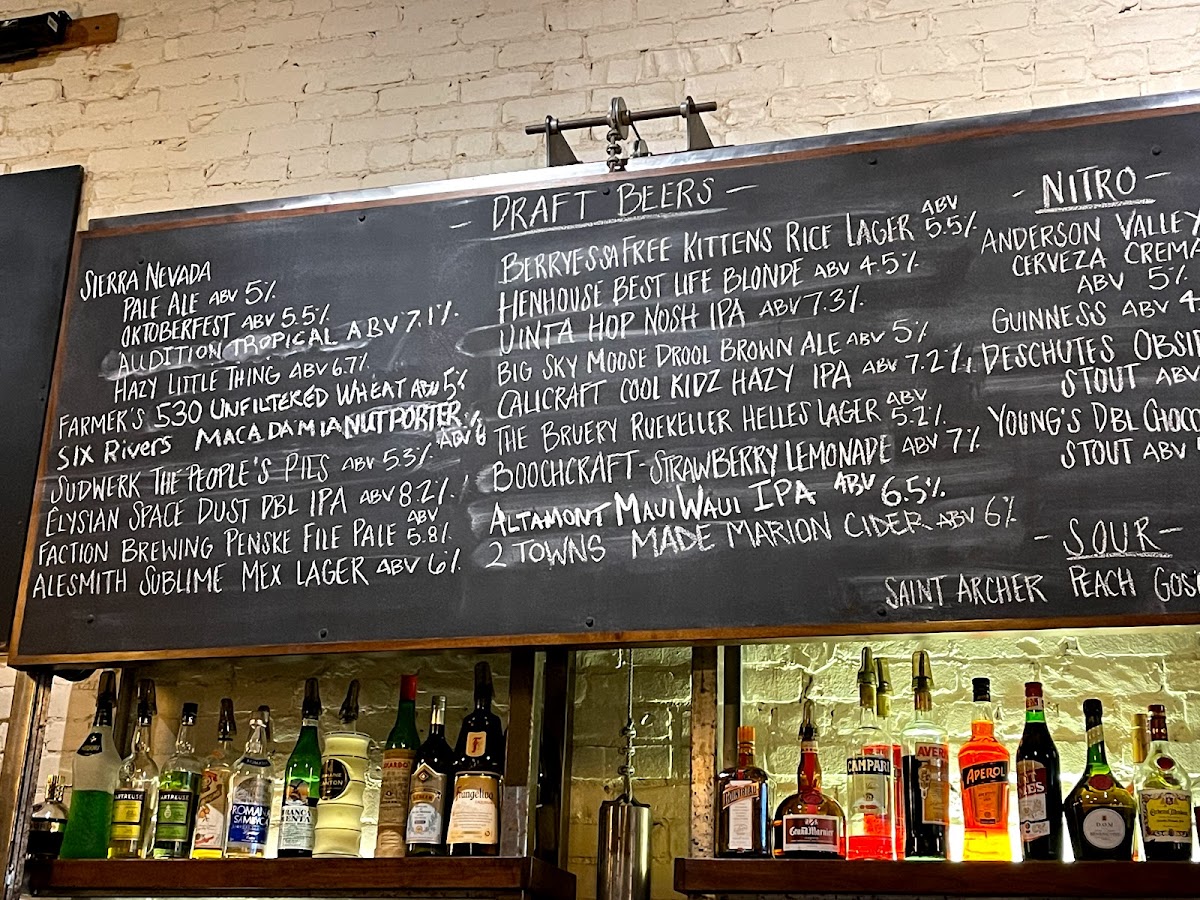 DRAFT BEERS
SIERRA NEVADA
PALE ALE ABV 5%
OKTOBERFEST ABV 5.5%
AUDITION TROPICAL ABV 7.1%
HAZY LITTLE THING ABV 6.7%
FARMER'S 530 UNFILTERED WHEAT ABV 5%
SIX RIVERS MACADAMIA NUT PORTER
ABV 6
SUDWERK THE PEOPLE'S PILS ABV 5.3%
ELYSIAN SPACE DUST DBL IPA ABV 8.2%
FACTION BREWING PENSKE FILE PALE ABV 5.8%
ALESMITH SUBLIME MEX LAGER ABV 6%
BERRYESSA FREE KITTENS RICE LAGER ABV 5.5%
HENHOUSE BEST LIFE BLONDE ABV 4.5%
UINTA HOP NOSH IPA ABV 7.3%
BIG SKY MOOSE DROOL BROWN ALE ABV 5%
CALICRAFT COOL KIDZ HAZY IPA ABV 7.2%
THE BRUERY RUEKELLER HELLES LAGER ABV 5.2%
BOOCHCRAFT - STRAWBERRY LEMONADE ABV 7%
ALTAMONT MAUI WAUI IPA ABV 6.5%
2 TOWNS MADE MARION CIDER ABV 6%
- NITRO -
ANDERSON VALLEY
CERVEZA CREMA
ABV 5%
GUINNESS ABV 4
DESCHUTES OBSI
STOUT ABV
YOUNG'S DBL CHOCO
STOUT ABV
- SOUR -
SAINT ARCHER PEACH GOS
CHARTREUSE
CHARTREUSE
ROMANA
SAMBUCA
BRANCA
MENTA
Frangelico
Grand Marnier
CAMPARI
AVER
APEROL
D.O.M